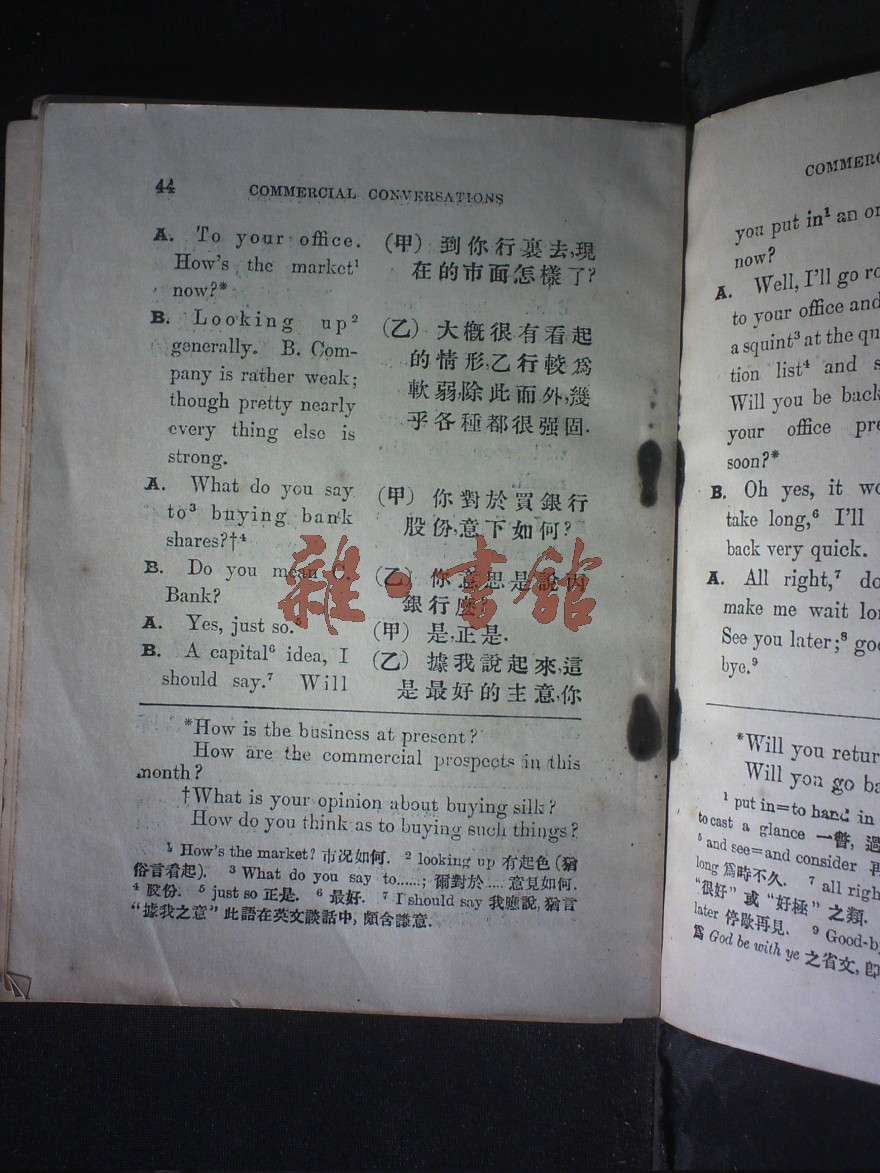 44 COMMERCIAL CONVERSATIONS
A. To your office.
How's the market¹
now?*
B. Looking up²
generally. B. Com-
pany is rather weak;
though pretty nearly
every thing else is
strong.
A. What do you say
to³ buying bank
shares?†⁴
B. Do you mean C.
Bank?
A. Yes, just so.⁵
B. A capital⁶ idea, I
should say.⁷ Will
(甲) 到你行裏去,現
在的市面怎樣了?
(乙) 大概很有看起
的情形,乙行較爲
軟弱,除此而外,幾
乎各種都很强固.
(甲) 你對於買銀行
股份,意下如何?
(乙) 你意思是說丙
銀行麼?
(甲) 是,正是.
(乙) 據我說起來,這
是最好的主意,你
*How is the business at present?
How are the commercial prospects in this
month?
†What is your opinion about buying silk?
How do you think as to buying such things?
¹ How's the market? 市况如何. ² looking up 有起色 (猶
俗言看起). ³ What do you say to......; 爾對於..... 意見如何.
⁴ 股份. ⁵ just so 正是. ⁶ 最好. ⁷ I should say 我應說, 猶言
“據我之意” 此語在英文談話中, 頗含謙意.
雜·書館
COMMERC
you put in¹ an
now?
A. Well, I'll go
to your office and
a squint³ at the
tion list⁴ and
Will you be back
your office
soon?*
B. Oh yes, it
take long,⁶ I'll
back very quick.
A. All right,⁷
make me wait
See you later;⁸
bye.⁹
*Will you
Will you go
¹ put in=to hand in
to cast a glance 一瞥,
⁵ and see=and consider
long 爲時不久. ⁷ all
“很好” 或 “好極” 之類.
later 停歇再見. ⁹
爲 God be with ye 之省文, 卽